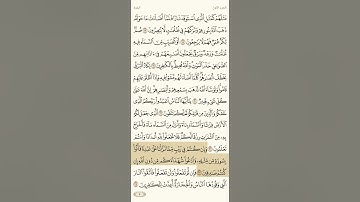 البقرة الجزء الأول
مَثَلُهُمْ كَمَثَلِ ٱلَّذِى ٱسْتَوْقَدَ نَارًا فَلَمَّآ أَضَآءَتْ مَا حَوْلَهُۥ
ذَهَبَ ٱللَّهُ بِنُورِهِمْ وَتَرَكَهُمْ فِى ظُلُمَٰتٍ لَّا يُبْصِرُونَ ١٧ صُمٌّۢ
بُكْمٌ عُمْىٌ فَهُمْ لَا يَرْجِعُونَ ١٨ أَوْ كَصَيِّبٍ مِّنَ ٱلسَّمَآءِ فِيهِ
ظُلُمَٰتٌ وَرَعْدٌ وَبَرْقٌ يَجْعَلُونَ أَصَٰبِعَهُمْ فِىٓ ءَاذَانِهِم مِّنَ
ٱلصَّوَٰعِقِ حَذَرَ ٱلْمَوْتِ وَٱللَّهُ مُحِيطٌۢ بِٱلْكَٰفِرِينَ ١٩ يَكَادُ ٱلْبَرْقُ
يَخْطَفُ أَبْصَٰرَهُمْ كُلَّمَآ أَضَآءَ لَهُم مَّشَوْا۟ فِيهِ وَإِذَآ أَظْلَمَ عَلَيْهِمْ
قَامُوا۟ وَلَوْ شَآءَ ٱللَّهُ لَذَهَبَ بِسَمْعِهِمْ وَأَبْصَٰرِهِمْ إِنَّ ٱللَّهَ عَلَىٰ
كُلِّ شَىْءٍ قَدِيرٌ ٢٠ يَٰٓأَيُّهَا ٱلنَّاسُ ٱعْبُدُوا۟ رَبَّكُمُ ٱلَّذِى خَلَقَكُمْ
وَٱلَّذِينَ مِن قَبْلِكُمْ لَعَلَّكُمْ تَتَّقُونَ ٢١ ٱلَّذِى جَعَلَ لَكُمُ
ٱلْأَرْضَ فِرَٰشًا وَٱلسَّمَآءَ بِنَآءً وَأَنزَلَ مِنَ ٱلسَّمَآءِ مَآءً فَأَخْرَجَ
بِهِۦ مِنَ ٱلثَّمَرَٰتِ رِزْقًا لَّكُمْ فَلَا تَجْعَلُوا۟ لِلَّهِ أَندَادًا وَأَنتُمْ
تَعْلَمُونَ ٢٢ وَإِن كُنتُمْ فِى رَيْبٍ مِّمَّا نَزَّلْنَا عَلَىٰ عَبْدِنَا فَأْتُوا۟
بِسُورَةٍ مِّن مِّثْلِهِۦ وَٱدْعُوا۟ شُهَدَآءَكُم مِّن دُونِ ٱللَّهِ إِن
كُنتُمْ صَٰدِقِينَ ٢٣ فَإِن لَّمْ تَفْعَلُوا۟ وَلَن تَفْعَلُوا۟ فَٱتَّقُوا۟ ٱلنَّارَ
ٱلَّتِى وَقُودُهَا ٱلنَّاسُ وَٱلْحِجَارَةُ أُعِدَّتْ لِلْكَٰفِرِينَ ٢٤